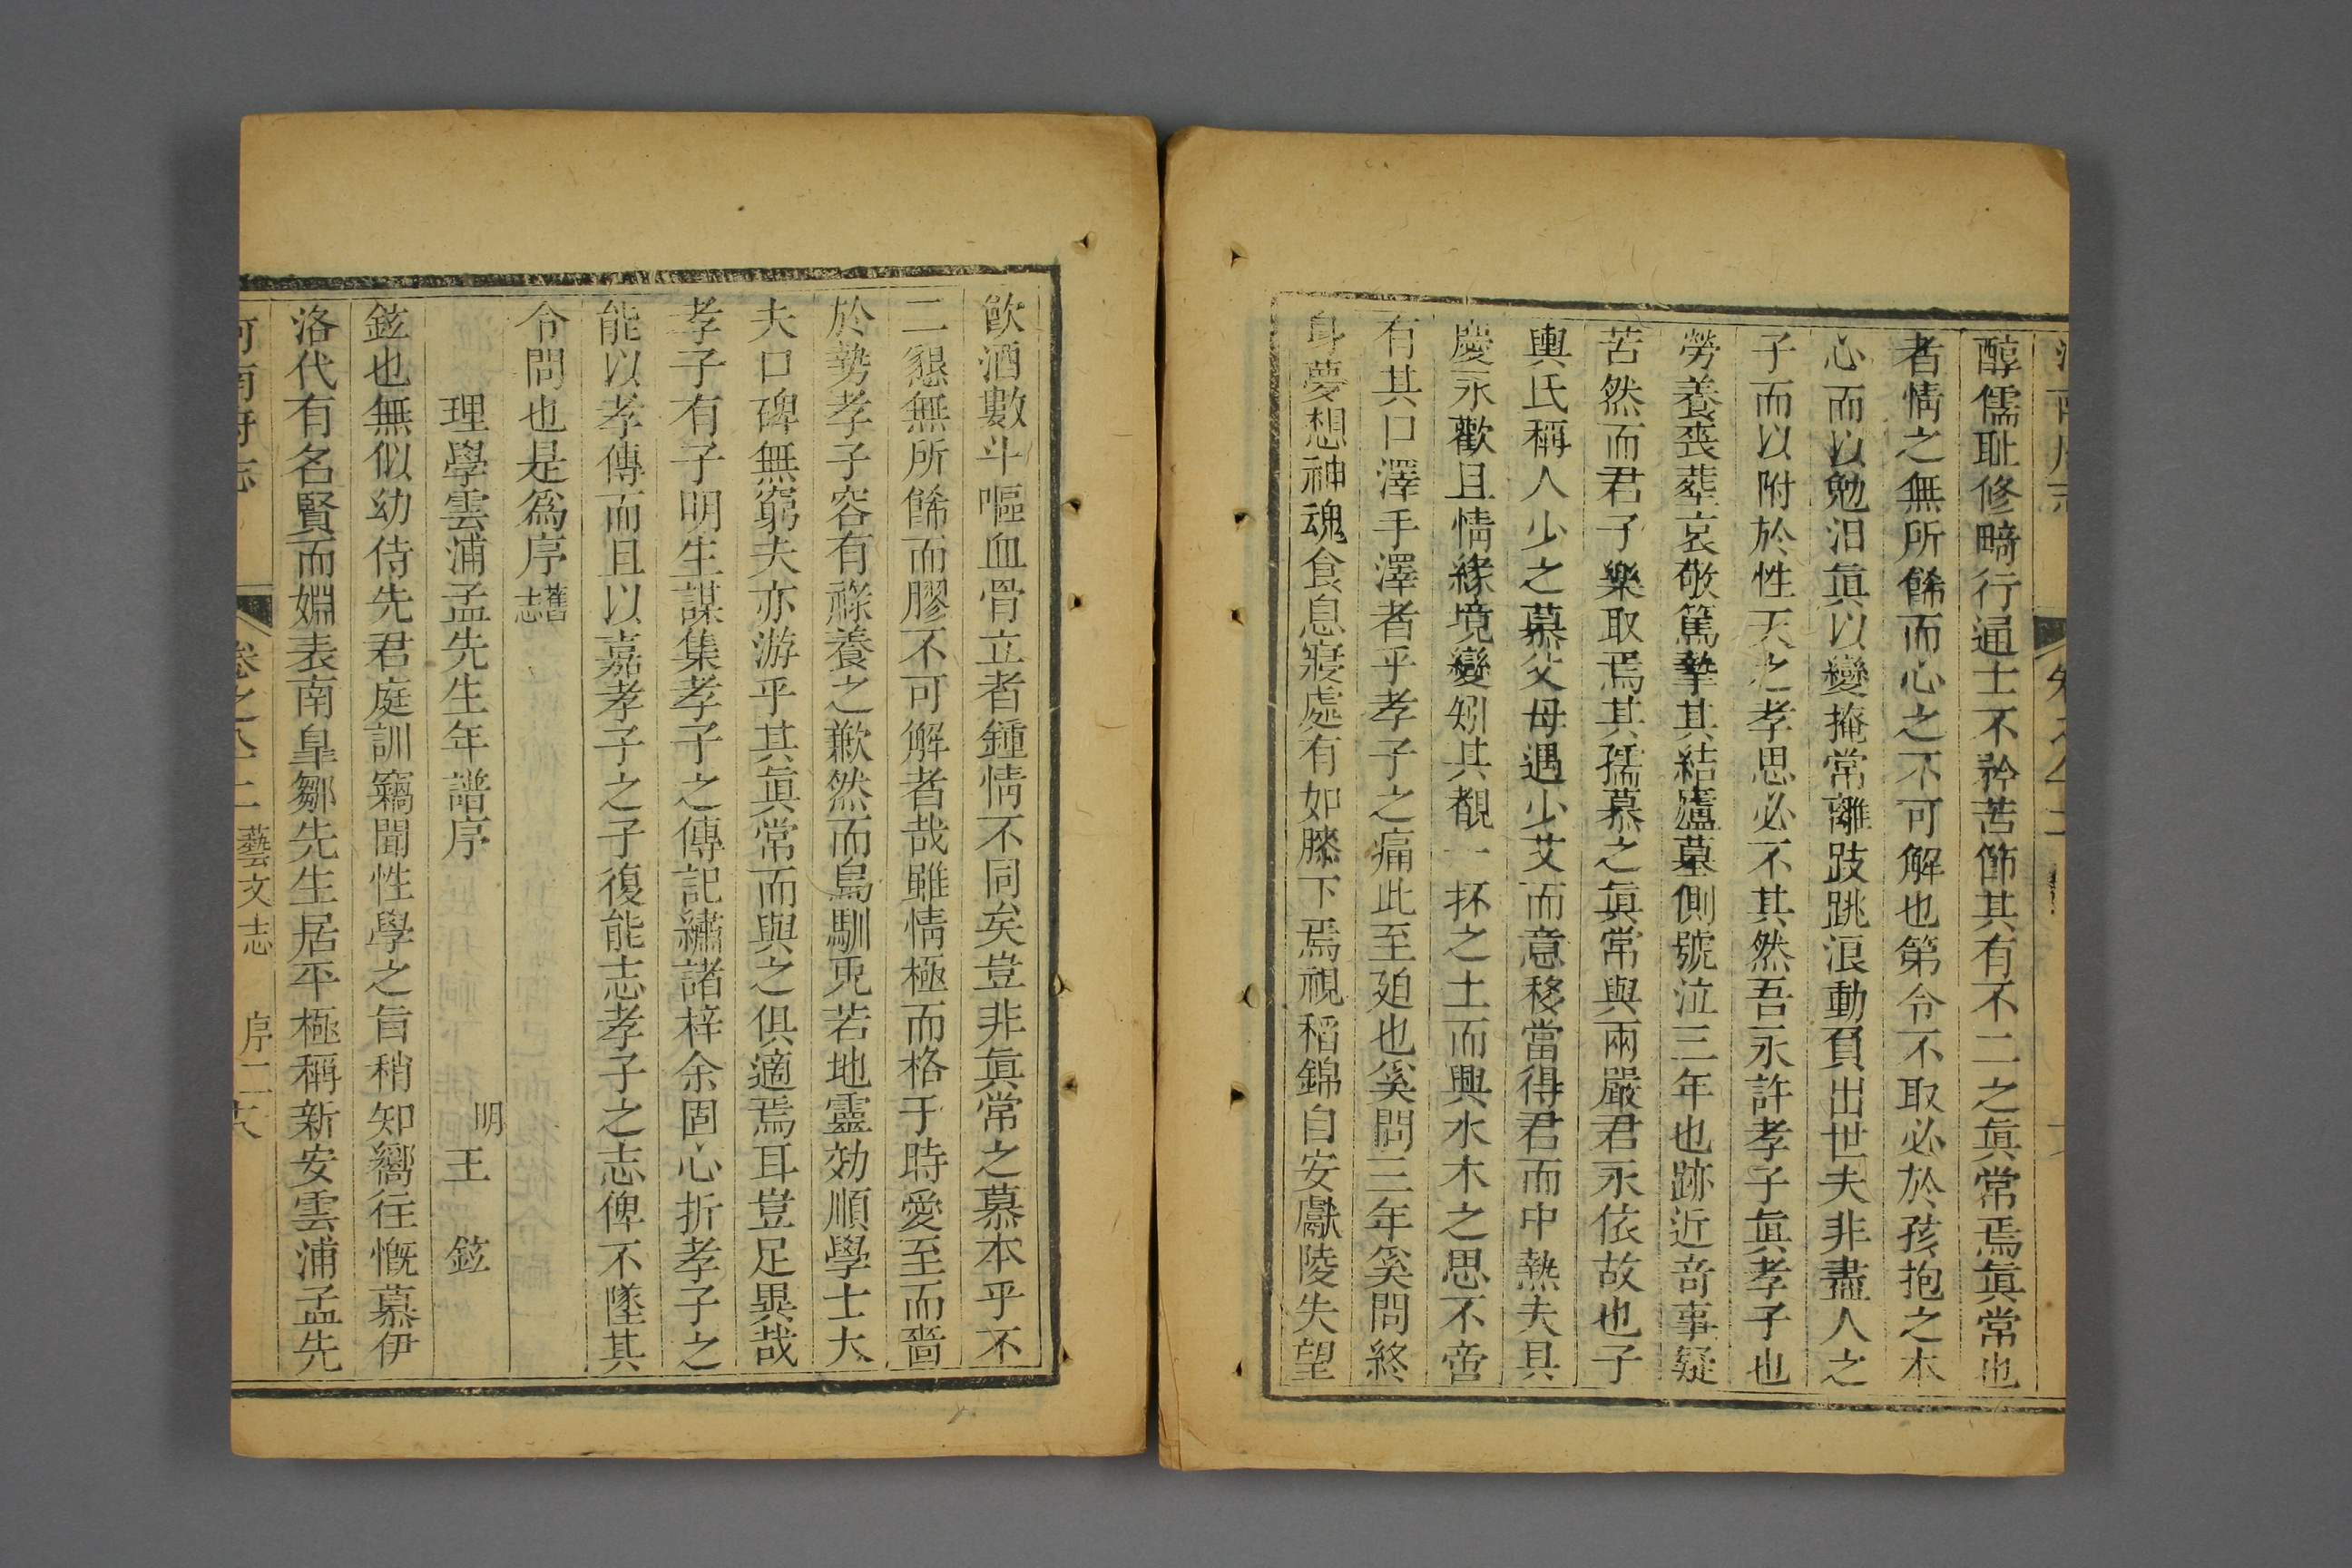 醇儒耻修畸行通士不矜苦節其有不二之眞常焉眞常也
者情之無所餙而心之不可解也第令不取必於孩抱之本
心而以勉汨眞以變掩常離跂跳浪動負出世夫非盡人之
子而以附於性天之孝思必不其然吾永許孝子眞孝子也
勞養喪葬哀敬篤摯其結廬墓側號泣三年也跡近竒事疑
苦然而君子樂取焉其孺慕之眞常與兩嚴君永依故也子
輿氏稱人少之慕父母遇少艾而意移當得君而中熱夫具
慶永歡且情緣境變矧其覩一抔之土而興水木之思不啻
有其口澤手澤者乎孝子之痛此至廹也奚問三年奚問終
身夢想神魂食息寢處有如膝下焉視稻錦自安獻陵失望
飲酒數斗嘔血骨立者鍾情不同矣豈非眞常之慕本乎不
二懇無所餙而膠不可解者哉雖情極而格于時愛至而嗇
於勢孝子容有祿養之歉然而鳥馴兎若地靈効順學士大
夫口碑無窮夫亦游乎其眞常而與之俱適焉耳豈足異哉
孝子有子明生謀集孝子之傳記繡諸梓余固心折孝子之
能以孝傳而且以嘉孝子之子復能志孝子之志俾不墜其
令問也是爲序舊志
理學雲浦孟先生年譜序
明王鉉
鉉也無似幼侍先君庭訓竊聞性學之旨稍知嚮往慨慕伊
洛代有名賢而姻表南皐鄒先生居平極稱新安雲浦孟先
河南府志 卷之 藝文志 序二